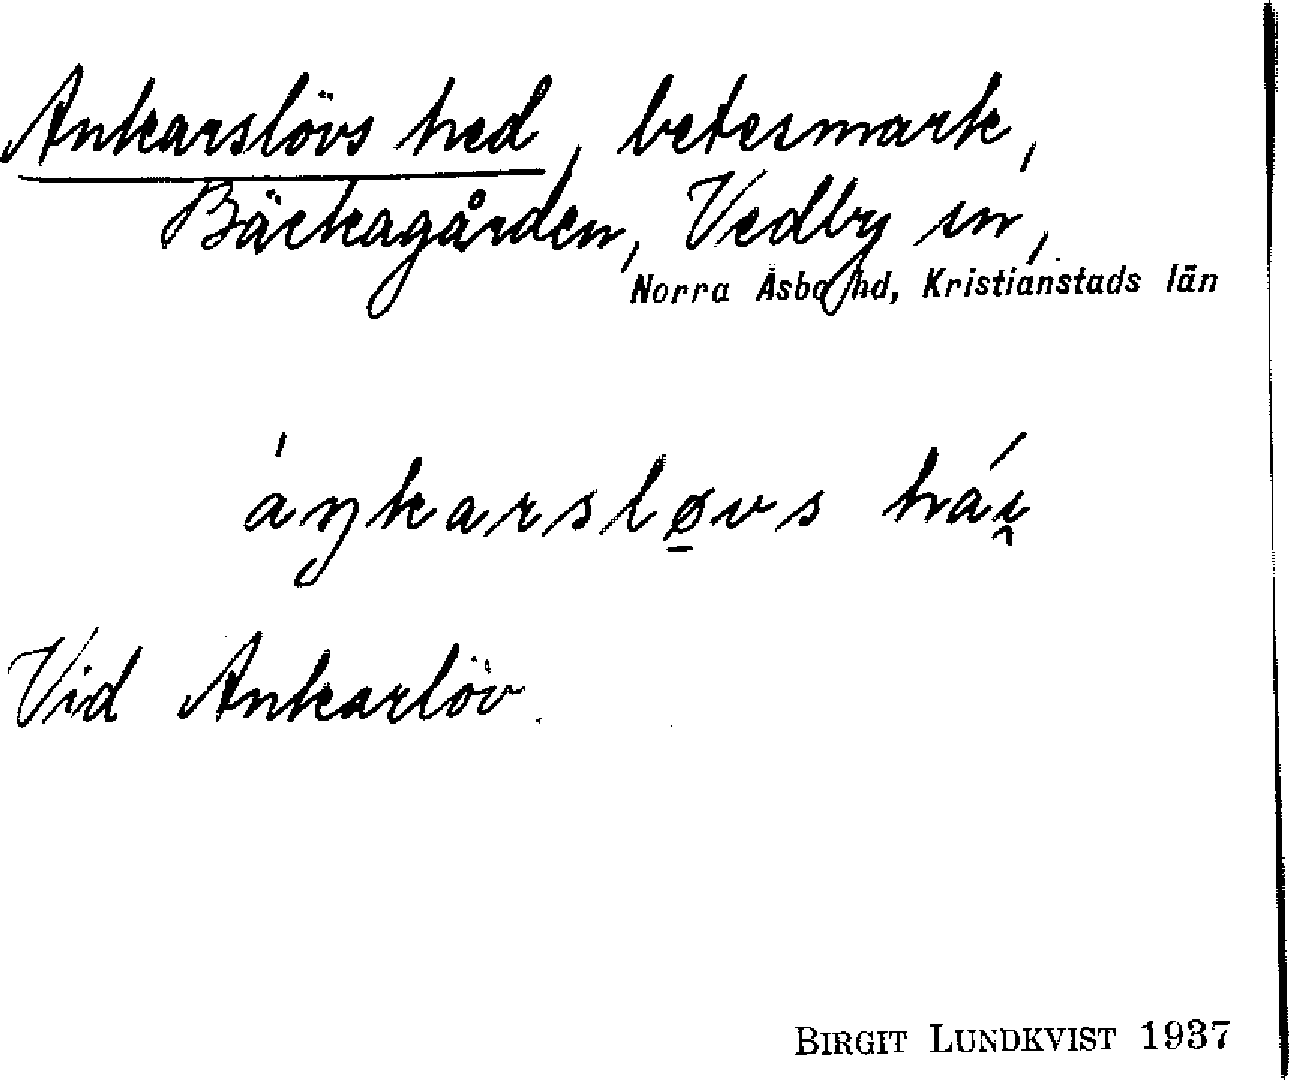 Ankarslövs hed, betesmark,
Bäckagården, Vedby sn,
Norra Åsbo hd, Kristianstads län
áŋkarslø̱vs hái̯
Vid Ankarlöv.
BIRGIT LUNDKVIST 1937